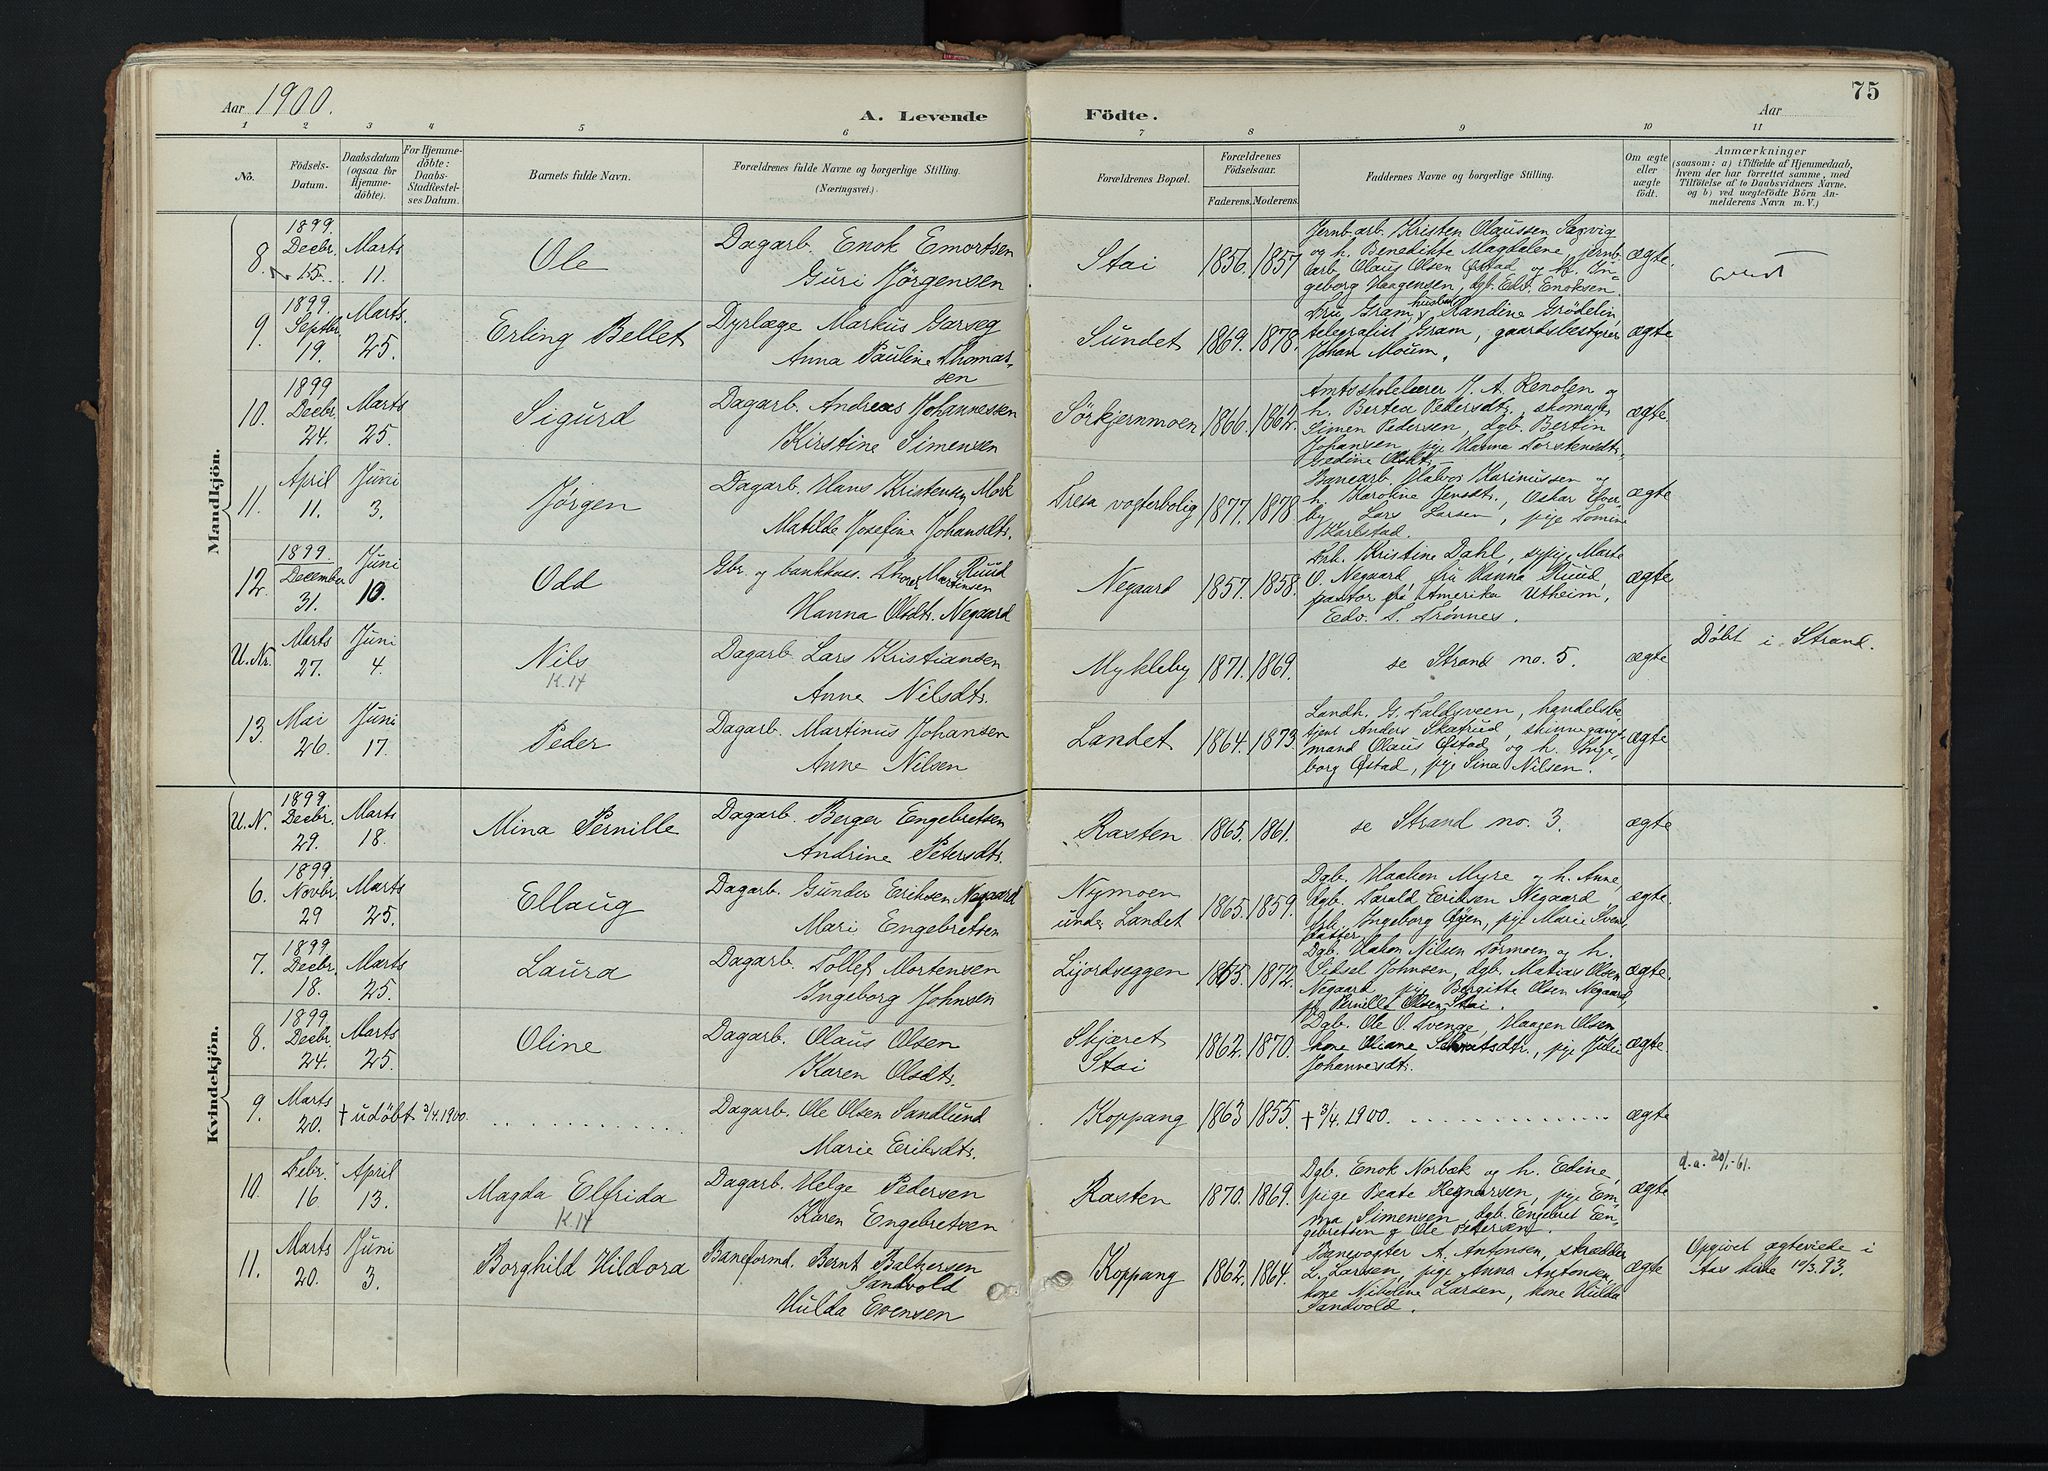 75
Aar 1900.
A. Levende Födte.
Aar
1 2 3 4 5 6 7 8 9 10 11
No.
Födsels-Datum.
Daabsdatum (ogsaa for Hjemme-döbte).
For Hjemme-döbte: Daabs-Stadfæstel-ses Datum.
Barnets fulde Navn.
Forældrenes fulde Navne og borgerlige Stilling. (Næringsvei).
Forældrenes Bopæl.
Forældrenes Födselsaar.
Faderens. Moderens.
Faddernes Navne og borgerlige Stilling.
Om ægte eller uægte födt.
Anmærkninger
(saasom: a) i Tilfælde af Hjemmedaab, hvem der har forrettet samme, med Tilföielse af to Daabsvidners Navne, og b) ved uægtefödte Börn Anmelderens Navn m. V.)
Mandkjön.
8. 1899. Decbr. 15. Marts 11. Ole
Dagarb. Enok Emortsen
Guri Jørgensen
Stai 1856. 1857
Jernb.arb. Kristen Olaussen
og h. Benedikte Magdalene jernb.
arb. Olaus Olsen Østad og h. In-
geborg Haagensen, dgb. Edv. Enoksen
ægte.
9. 1899. Septbr. 19. Marts. 25. Erling Bellet
Dyrlæge Markus Garseg
Anna Pauline Thomas-
sen
Sundet 1869. 1878.
Fru Gram, Randine Grödelin
telegrafist Gram, gaardsbestyrer
Johan Moum.
ægte
10. 1899 Decbr. 24. Marts 25. Sigurd
Dagarb. Andreas Johannessen
Kirstine Simensen
Sörkjernmoen 1866. 1862.
Amtsskolelærer J. A. Renolen og
h. Bertea Pedersdtr., skomager
Simen Pedersen, dgb. Bertin
Johansen, pige Hanna Torstensdtr.
Gedine Olsdtr.
ægte.
11. April 11. Juni 3. Jørgen
Dagarb. Hans Kristensen Mork
Matilde Josefine Johansdtr.
Tresa vogterbolig 1877. 1878
Banearb. Halvor Karinussen og
h. Karoline Jensdtr., Oskar
by, Lars Larsen, pige
Karlstad.
ægte
12. 1899. December 31. Juni 10. Odd
Gbr. og bankkass. Thore Martinsen Ruud
Hanna Olsdtr. Negaard
Negaard 1857. 1858.
Frk. Kristine Dahl, sypige Marte
O. Negaard, fru Hanna Ruud,
pastor fra Amerika Utheim,
Edv. T. Trønnes.
ægte
U. Nr. Marts 27. Juni 4. Nils
K. 14
Dagarb. Lars Kristiansen
Anne Nilsdtr.
Mykleby 1871. 1869.
se Strand no. 5.
ægte
Døbt i Strand.
13. Mai 26. Juni 17. Peder
Dagarb. Martinus Johansen
Anne Nilsen
Landet 1864. 1873.
Landh. G. Faldsveen, handelsbe-
tjent Anders Skatrud, skinnegangs-
mand Olaus Østad og h. Inge-
borg Østad, pige Sina Nilsen.
ægte
Kvindekjön.
U. N. 1899 Decbr. 29. Marts 18. Mina Pernille
Dagarb. Berger Engebretsen
Andrine Petersdtr.
Rasten 1865. 1861.
se Strand no. 3.
ægte
6. 1899. Novbr. 29 Marts 25. Ellaug
Dagarb. Gunder Eriksen Negaard
Mari Engebretsen
Nymoen
under Landet 1865. 1859.
Dgb. Haaken Myre og h. Anne,
dgb. Tarald Eriksen Negaard,
Ingeborg Øien, pige Marie Svens-
datter
ægte.
7. 1899 Decbr. 18. Marts 25. Laura
Dagarb. Tollef Mortensen
Ingeborg Johnsen
Lijordseggen 1865. 1872.
Dgb. Hakon Nilsen Tørmoen og h.
Sidsel Johnsen, dgb. Matias Olsen
Negaard, pige Bergitte Olsen Negaard,
pige Pernille Olsen Stai.
ægte.
8. 1899 Decbr. 24. Marts 25. Oline
Dagarb. Olaus Olsen
Karen Olsdtr.
Skjæret
Stai 1862. 1870.
Dgb. Ole O. Tvenge, Haagen Olsen
kone Oliane, pige Julie
Johannesdtr.
ægte
9. Marts 20. † udöbt 3/4.1900.
Dagarb. Ole Olsen Sandlund
Marie Eriksdtr.
Koppang 1863 1855.
† 3/4. 1900.
ægte
10. Febr. 16 April 13. Magda Elfrida
K. 14
Dagarb. Helge Pedersen
Karen Engebretsen
Rasten 1870. 1869.
Dgb. Enok Norbæk og h. Edine,
pige Beate Regnarsen, pige Em-
ma Simensen, dgb. Engebret En-
gebretsen og Ole Pettersen.
ægte
d.a. 20/1-61.
11. Marts 20. Juni 3. Borghild Hildora
Baneformd. Bernt Baltzersen
Sandvold
Hulda Evensen
Koppang 1862. 1864.
Banevogter A. Antonsen, skrædder
L. Larsen, pige Anna Antonsen,
kone Nikoline Larsen, kone Hulda
Sandvold.
ægte
Opgivet ægteviede i
Aas kirke 10/3.93.